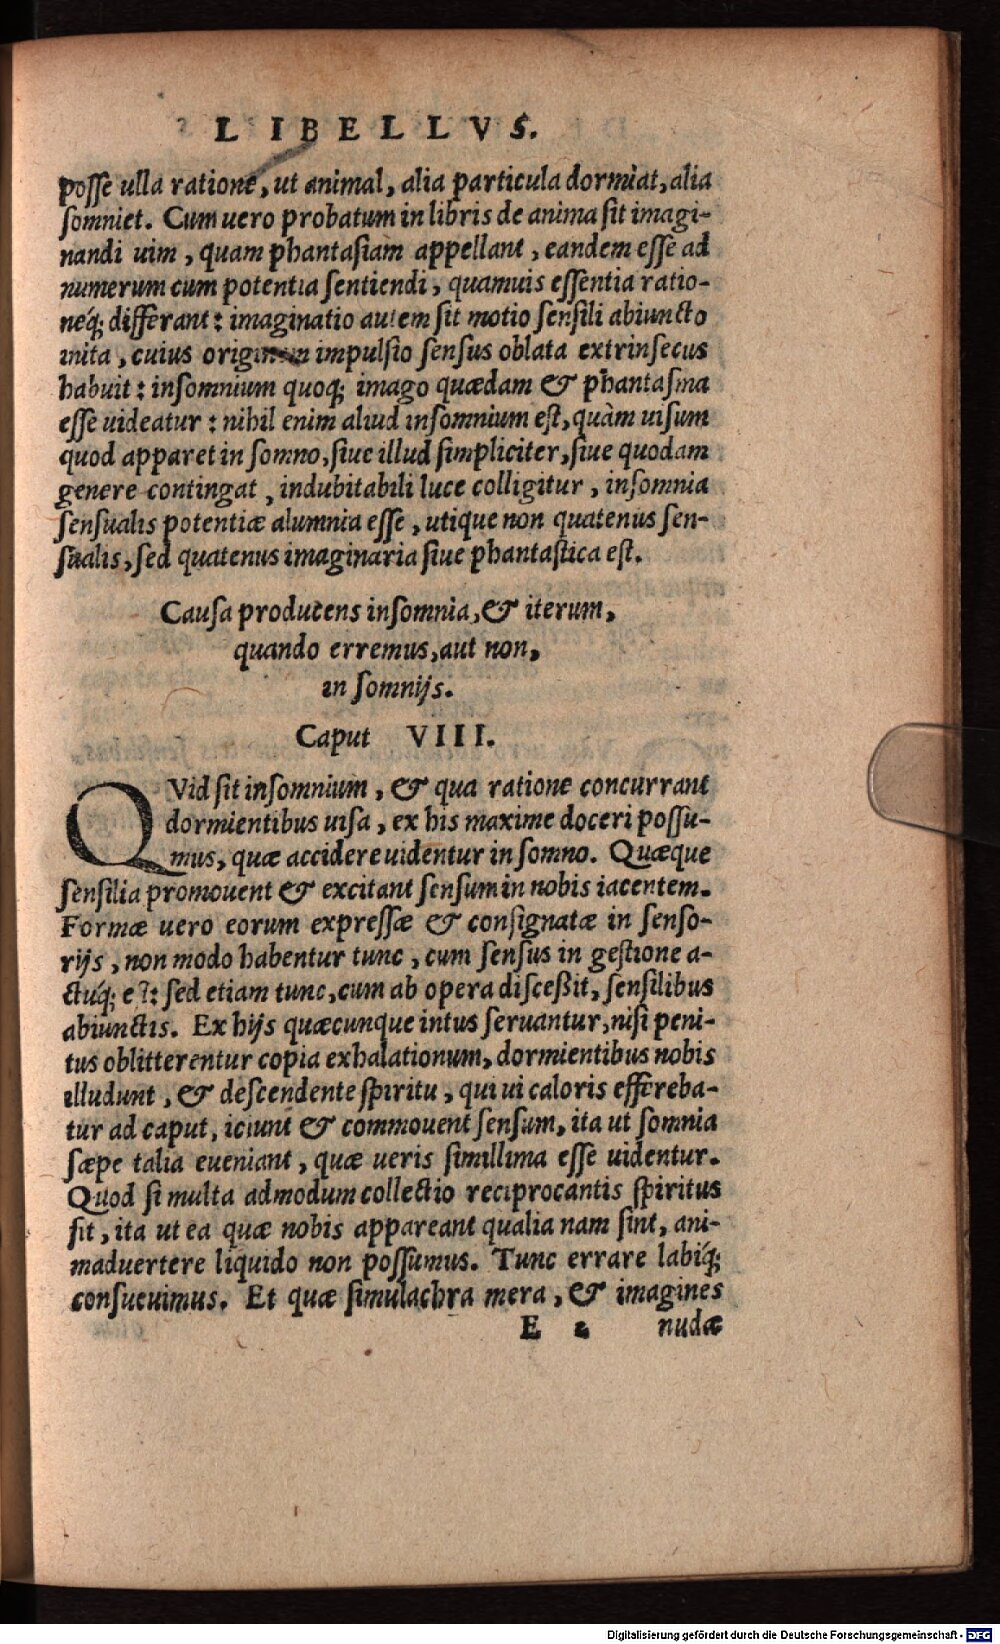 LIBELLVS.
posse ulla ratione, ut animal, alia particula dormiat, alia
somniet. Cum uero probatum in libris de anima sit imagi-
nandi uim, quam phantasiam appellant, eandem esse ad
numerum cum potentia sentiendi, quamuis essentia ratio-
neq́; differant: imaginatio autem sit motio sensili abiuncto
inita, cuius originem impulsio sensus oblata extrinsecus
habuit: insomnium quoq; imago quædam & phantasma
esse uideatur: nihil enim aliud insomnium est, quàm uisum
quod apparet in somno, siue illud simpliciter, siue quodam
genere contingat, indubitabili luce colligitur, insomnia
sensualis potentiæ alumnia esse, utique non quatenus sen-
sualis, sed quatenus imaginaria siue phantastica est.
Causa producens insomnia, & iterum,
quando erremus, aut non,
in somnijs.
Caput VIII.
QVid sit insomnium, & qua ratione concurrant
dormientibus uisa, ex his maxime doceri possu-
mus, quæ accidere uidentur in somno. Quæque
sensilia promouent & excitant sensum in nobis iacentem.
Formæ uero eorum expressæ & consignatæ in senso-
rijs, non modo habentur tunc, cum sensus in gestione a-
ctuq́; est: sed etiam tunc, cum ab opera discessit, sensilibus
abiunctis. Ex hijs quæcunque intus seruantur, nisi peni-
tus oblitterentur copia exhalationum, dormientibus nobis
illudunt, & descendente spiritu, qui ui caloris effereba-
tur ad caput, iciunt & commouent sensum, ita ut somnia
sæpe talia eueniant, quæ ueris simillima esse uidentur.
Quod si multa admodum collectio reciprocantis spiritus
sit, ita ut ea quæ nobis appareant qualia nam sint, ani-
maduertere liquido non possumus. Tunc errare labiq́;
consueuimus. Et quæ simulachra mera, & imagines
E 2 nudæ
Digitalisierung gefördert durch die Deutsche Forschungsgemeinschaft - DFG